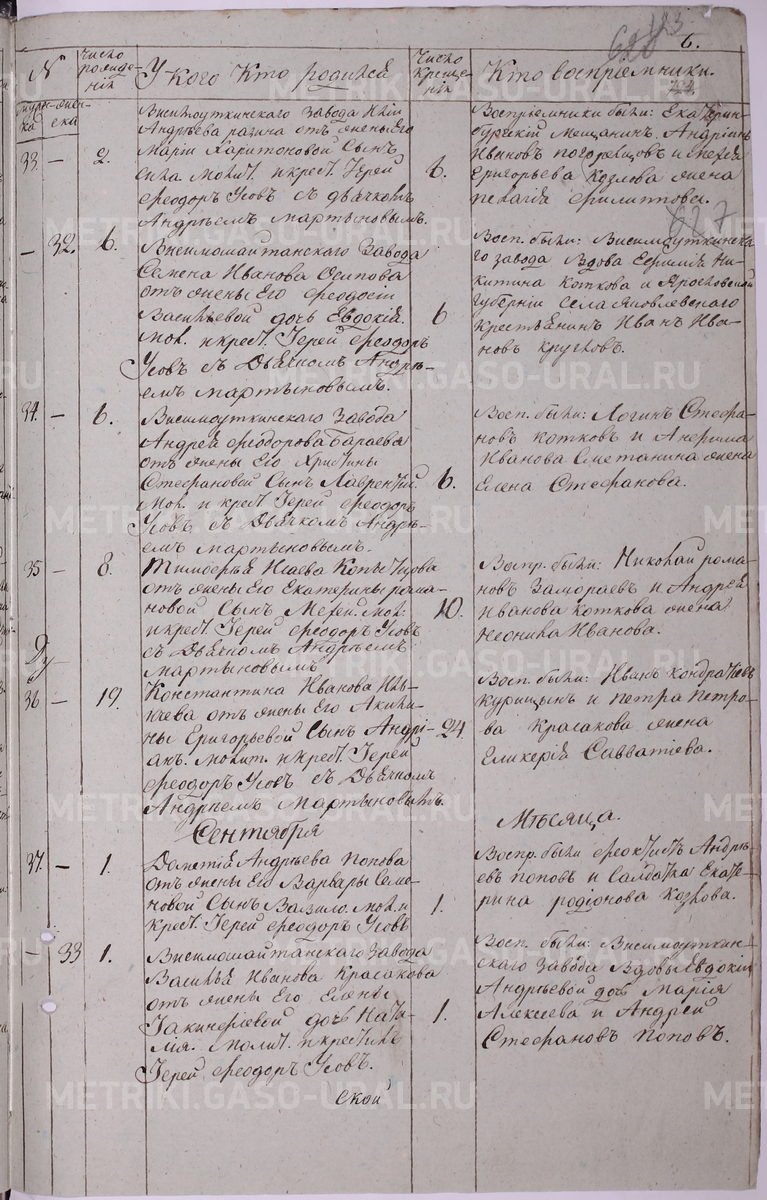 123
6.
N
Число рожде-
нія
У Кого Кто родился
Число
креще-
нія
Кто воспріемники.
муж-
ска
жен-
ска
33. — 2.
Висимоуткинскаго Завода
Андрѣева отъ жены Его
Маріи Харитоновой Сынъ
Молит. и крест. Іерей
Феодоръ Усовъ съ дьячкомъ
Андрѣемъ Мартыновымъ.
6.
Воспріемники были: Екатерин-
бургскій Мещанинъ Андріанъ
Ивановъ и
Григорьева Козлова жена
Пелагія Филитова.
627
— 32. 6.
Висимошайтанскаго Завода
Семена Иванова Осипова
отъ жены Его Феодосіи
Васильевой дочь Евдокія.
Мол. и крест. Іерей Феодоръ
Усовъ съ Дьячкомъ Андрѣ-
емъ Мартыновымъ.
6
Восп. были: Висимоуткинска-
го завода Вдова Ни-
китина Коткова и Ярославской
Губерніи села Яковлевскаго
Крестьянинъ Иванъ Ива-
новъ Кругловъ.
34. — 6.
Висимоуткинскаго Завода
Андрея Феодорова Бараева
отъ жены Его Христины
Стефановой Сынъ Лаврентій.
Мол. и крест. Іерей Феодоръ
Усовъ съ Дьячкомъ Андрѣ-
емъ Мартыновымъ.
6.
Восп. были: Логинъ Стефа-
новъ Котковъ и
Иванова Сметанина жена
Елена Стефанова.
35 — 8.
Тимофея Исаева Копытова
отъ жены Его Екатерины рома-
новой Сынъ Мол.
и крест. Іерей Феодоръ Усовъ
съ Дьячкомъ Андрѣемъ
Мартыновымъ
10.
Воспр. были: Николай рома-
новъ Замораевъ и Андрея
Иванова Коткова жена
Леонила Иванова.
36 — 19.
Константина Иванова
отъ жены Его Акили-
ны Григорьевой Сынъ Андрі-
анъ. Молит. и крест. Іерей
Феодоръ Усовъ съ Дьячкомъ
Андреемъ Мартыновымъ.
24.
Восп. были: Иванъ Кондратьевъ
Курицынъ и Петра Петро-
ва Красакова жена
Гликерія Савватіева.
Сентября
Мѣсяца.
37. — 1.
Дометія Андрѣева Попова
отъ жены Его Варвары Семе-
новой Сынъ Вавило. Мол. и
крест. Іерей Феодоръ Усовъ
1.
Воспр. были Феоктистъ Андрѣ-
евъ Поповъ и Салдатка Екате-
рина родіонова Козлова.
— 33 1.
Висимошайтанскаго Завода
Василья Иванова Красакова
отъ жены Его Елены
Іакинфіевой дочь Ната-
лія. Молит. и крестилъ
Іерей Феодоръ Усовъ.
1.
Восп. были: Висимоуткин-
скаго Завода Вдовы Евдокіи
Андрѣевой дочь Марія
Алексеева и Андрей
Стефановъ Поповъ.
ской
METRIKI.GASO-URAL.RU